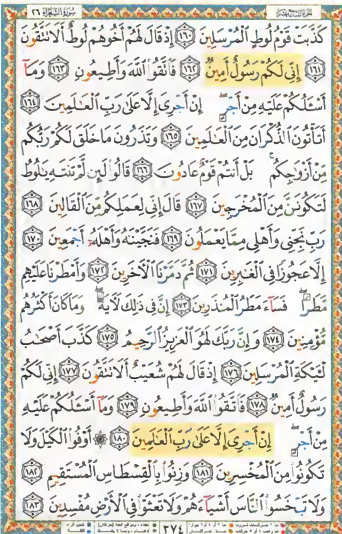 سورة الشعراء ٢٦
كَذَّبَتْ قَوْمُ لُوطٍ ٱلْمُرْسَلِينَ ١٦٠ إِذْ قَالَ لَهُمْ أَخُوهُمْ لُوطٌ أَلَا تَتَّقُونَ
١٦١ إِنِّي لَكُمْ رَسُولٌ أَمِينٌ ١٦٢ فَٱتَّقُوا۟ ٱللَّهَ وَأَطِيعُونِ ١٦٣ وَمَآ
أَسْـَٔلُكُمْ عَلَيْهِ مِنْ أَجْرٍ ۖ إِنْ أَجْرِىَ إِلَّا عَلَىٰ رَبِّ ٱلْعَـٰلَمِينَ ١٦٤
أَتَأْتُونَ ٱلذُّكْرَانَ مِنَ ٱلْعَـٰلَمِينَ ١٦٥ وَتَذَرُونَ مَا خَلَقَ لَكُمْ رَبُّكُم
مِّنْ أَزْوَٰجِكُم ۚ بَلْ أَنتُمْ قَوْمٌ عَادُونَ ١٦٦ قَالُوا۟ لَئِن لَّمْ تَنتَهِ يَـٰلُوطُ
لَتَكُونَنَّ مِنَ ٱلْمُخْرَجِينَ ١٦٧ قَالَ إِنِّى لِعَمَلِكُم مِّنَ ٱلْقَالِينَ ١٦٨
رَبِّ نَجِّنِى وَأَهْلِى مِمَّا يَعْمَلُونَ ١٦٩ فَنَجَّيْنَـٰهُ وَأَهْلَهُۥٓ أَجْمَعِينَ ١٧٠
إِلَّا عَجُوزًا فِى ٱلْغَـٰبِرِينَ ١٧١ ثُمَّ دَمَّرْنَا ٱلْـَٔاخَرِينَ ١٧٢ وَأَمْطَرْنَا عَلَيْهِم
مَّطَرًا ۖ فَسَآءَ مَطَرُ ٱلْمُنذَرِينَ ١٧٣ إِنَّ فِى ذَٰلِكَ لَـَٔايَةً ۖ وَمَا كَانَ أَكْثَرُهُم
مُّؤْمِنِينَ ١٧٤ وَإِنَّ رَبَّكَ لَهُوَ ٱلْعَزِيزُ ٱلرَّحِيمُ ١٧٥ كَذَّبَ أَصْحَـٰبُ
لْـَٔيْكَةِ ٱلْمُرْسَلِينَ ١٧٦ إِذْ قَالَ لَهُمْ شُعَيْبٌ أَلَا تَتَّقُونَ ١٧٧ إِنِّى لَكُمْ
رَسُولٌ أَمِينٌ ١٧٨ فَٱتَّقُوا۟ ٱللَّهَ وَأَطِيعُونِ ١٧٩ وَمَآ أَسْـَٔلُكُمْ عَلَيْهِ
مِنْ أَجْرٍ ۖ إِنْ أَجْرِىَ إِلَّا عَلَىٰ رَبِّ ٱلْعَـٰلَمِينَ ١٨٠ ۞ أَوْفُوا۟ ٱلْكَيْلَ وَلَا
تَكُونُوا۟ مِنَ ٱلْمُخْسِرِينَ ١٨١ وَزِنُوا۟ بِٱلْقِسْطَاسِ ٱلْمُسْتَقِيمِ ١٨٢
وَلَا تَبْخَسُوا۟ ٱلنَّاسَ أَشْيَآءَهُمْ وَلَا تَعْثَوْا۟ فِى ٱلْأَرْضِ مُفْسِدِينَ ١٨٣
٣٧٤